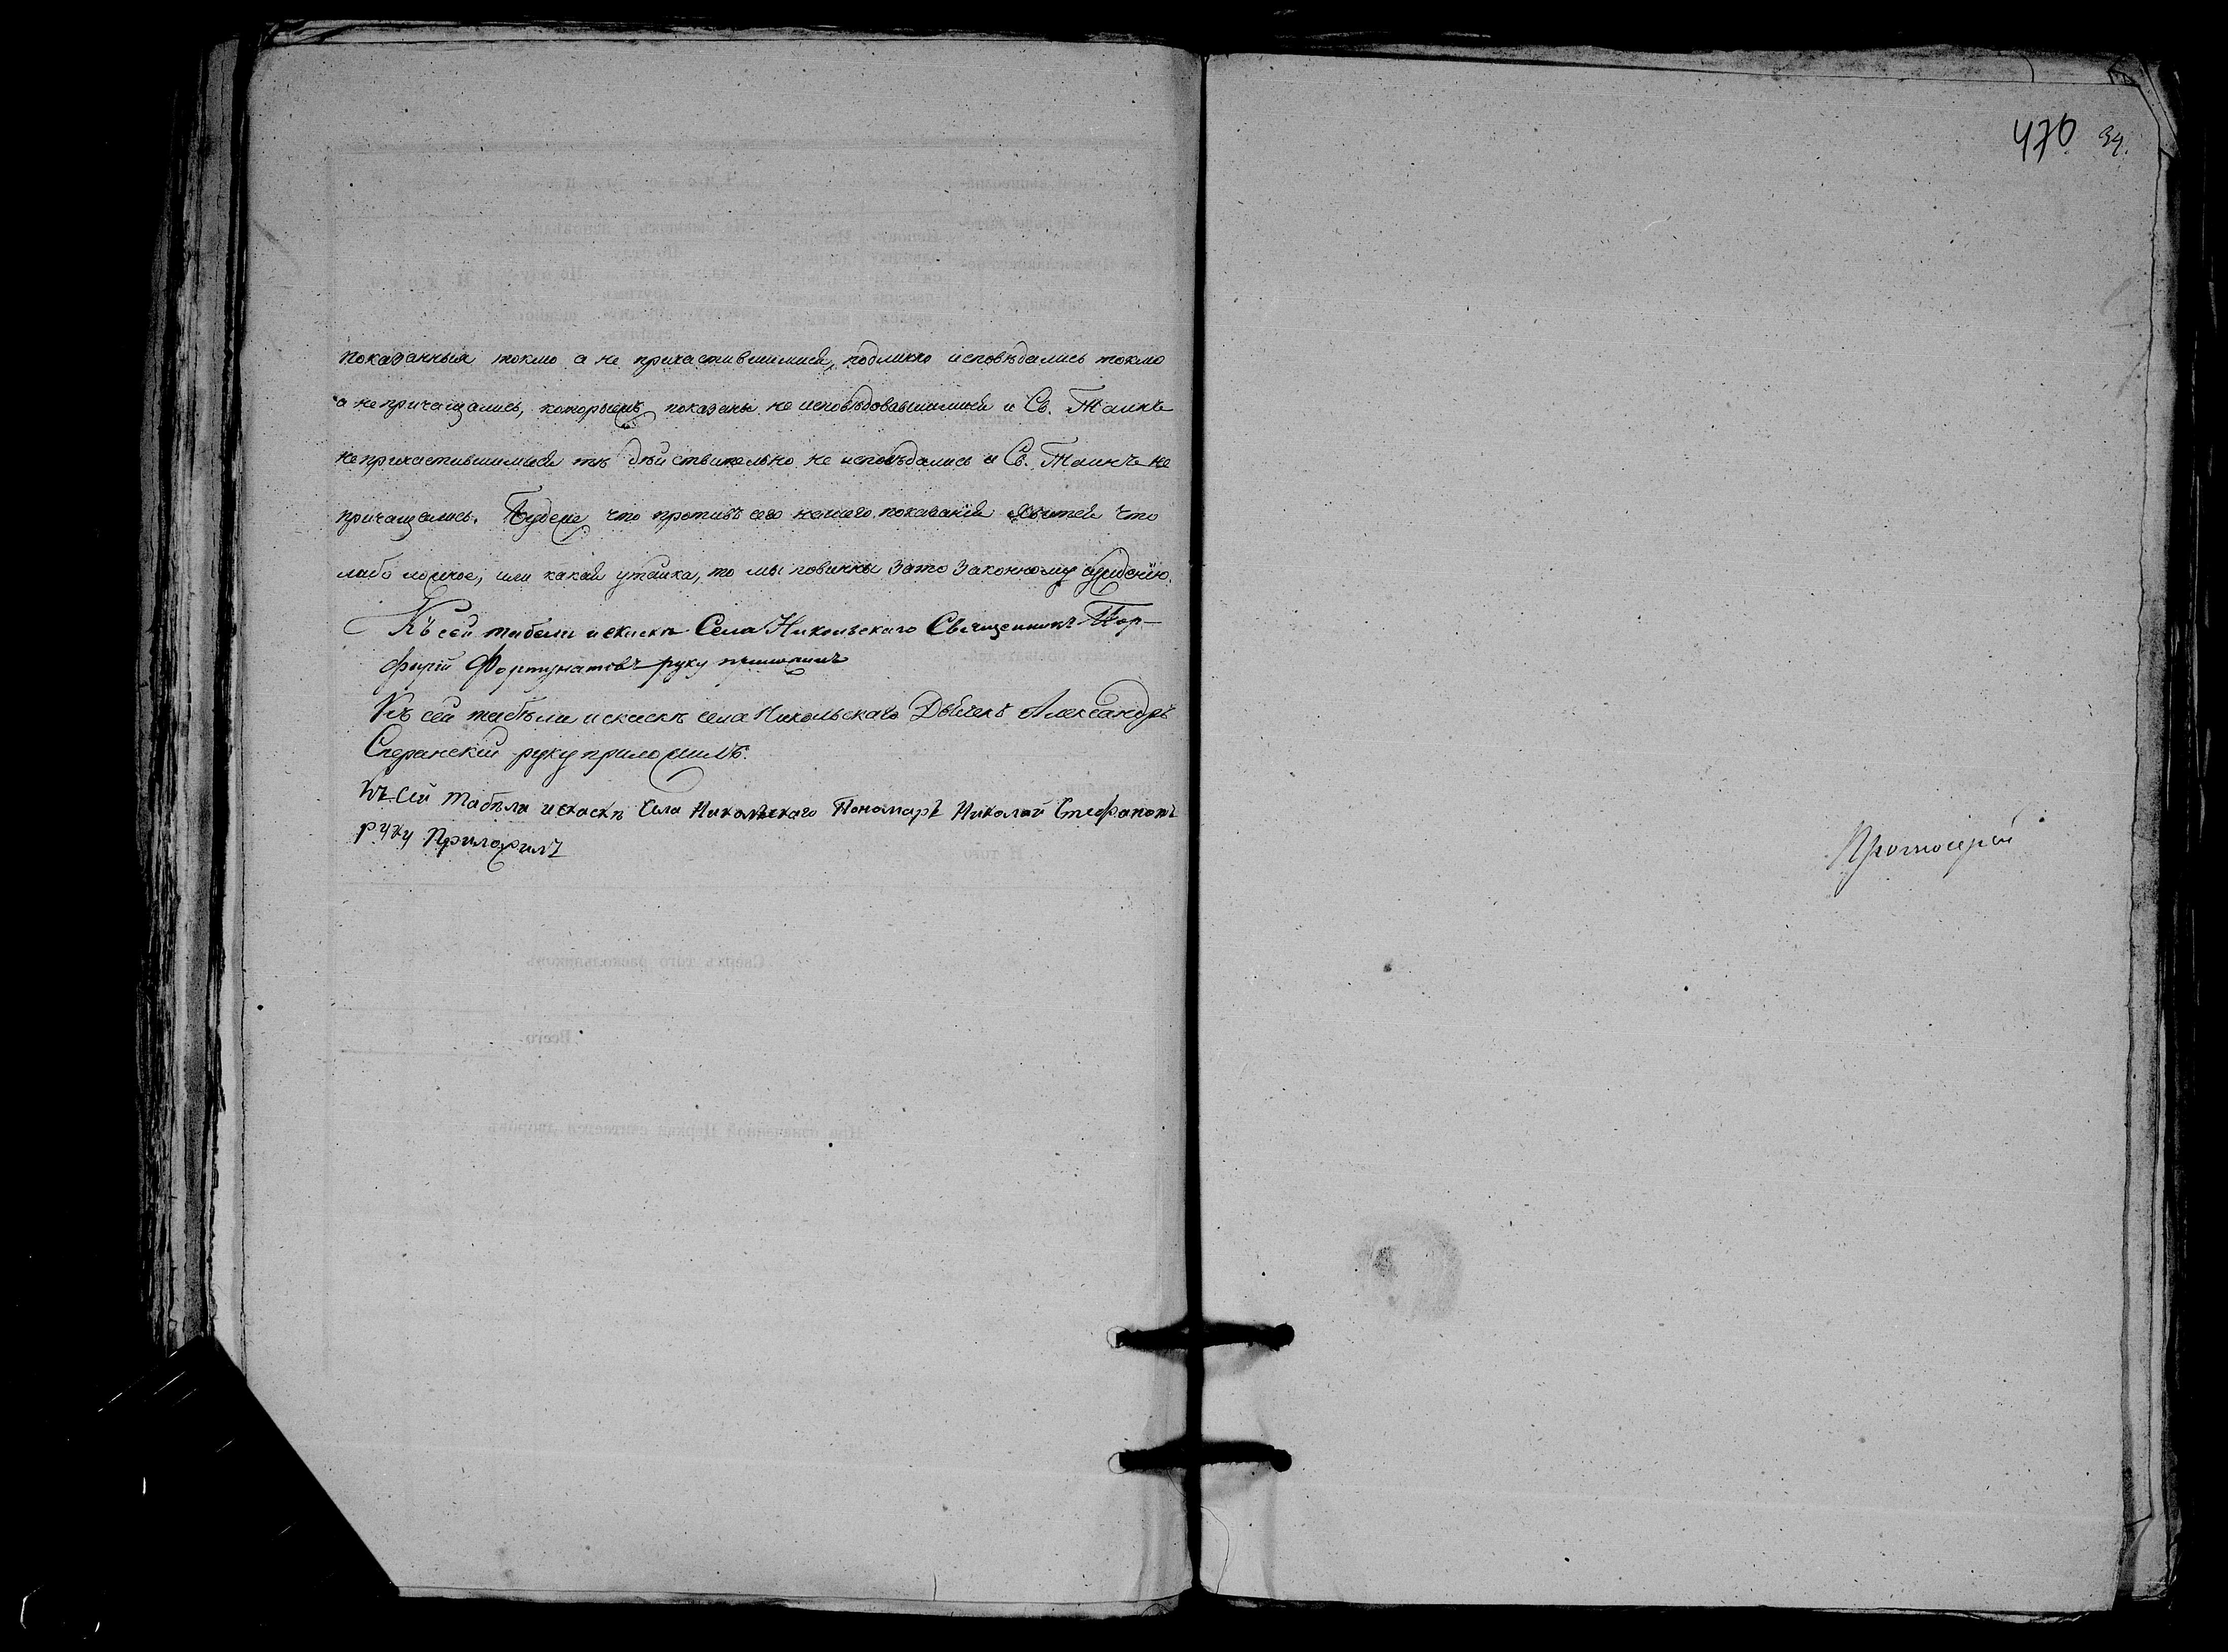 показанныя токмо а не причастившимися, подлинно исповѣдались токмо
а не причащались, которыежъ показаны не исповѣдовавшимися и Св. Таинъ
не причастившимися тѣ дѣйствительно не исповѣдались и Св. Таинъ не
причащались. Будеже что противъ сего нашего показанія явится что
либо ложное, или какая утайка, то мы повинны зато законному сужденію.
Къ сей табели и скаскѣ Села Никольскаго Священникъ Пор-
фирій Фортунатовъ руку приложилъ
Къ сей табѣли и скаскѣ села Никольскаго Дьячекъ Александръ
Сперанскій руку приложилъ.
Къ сей Табѣли и скаскѣ Села Никольскаго Пономарь Николай Стефановъ
руку Приложилъ
470 34.
Протоіерей